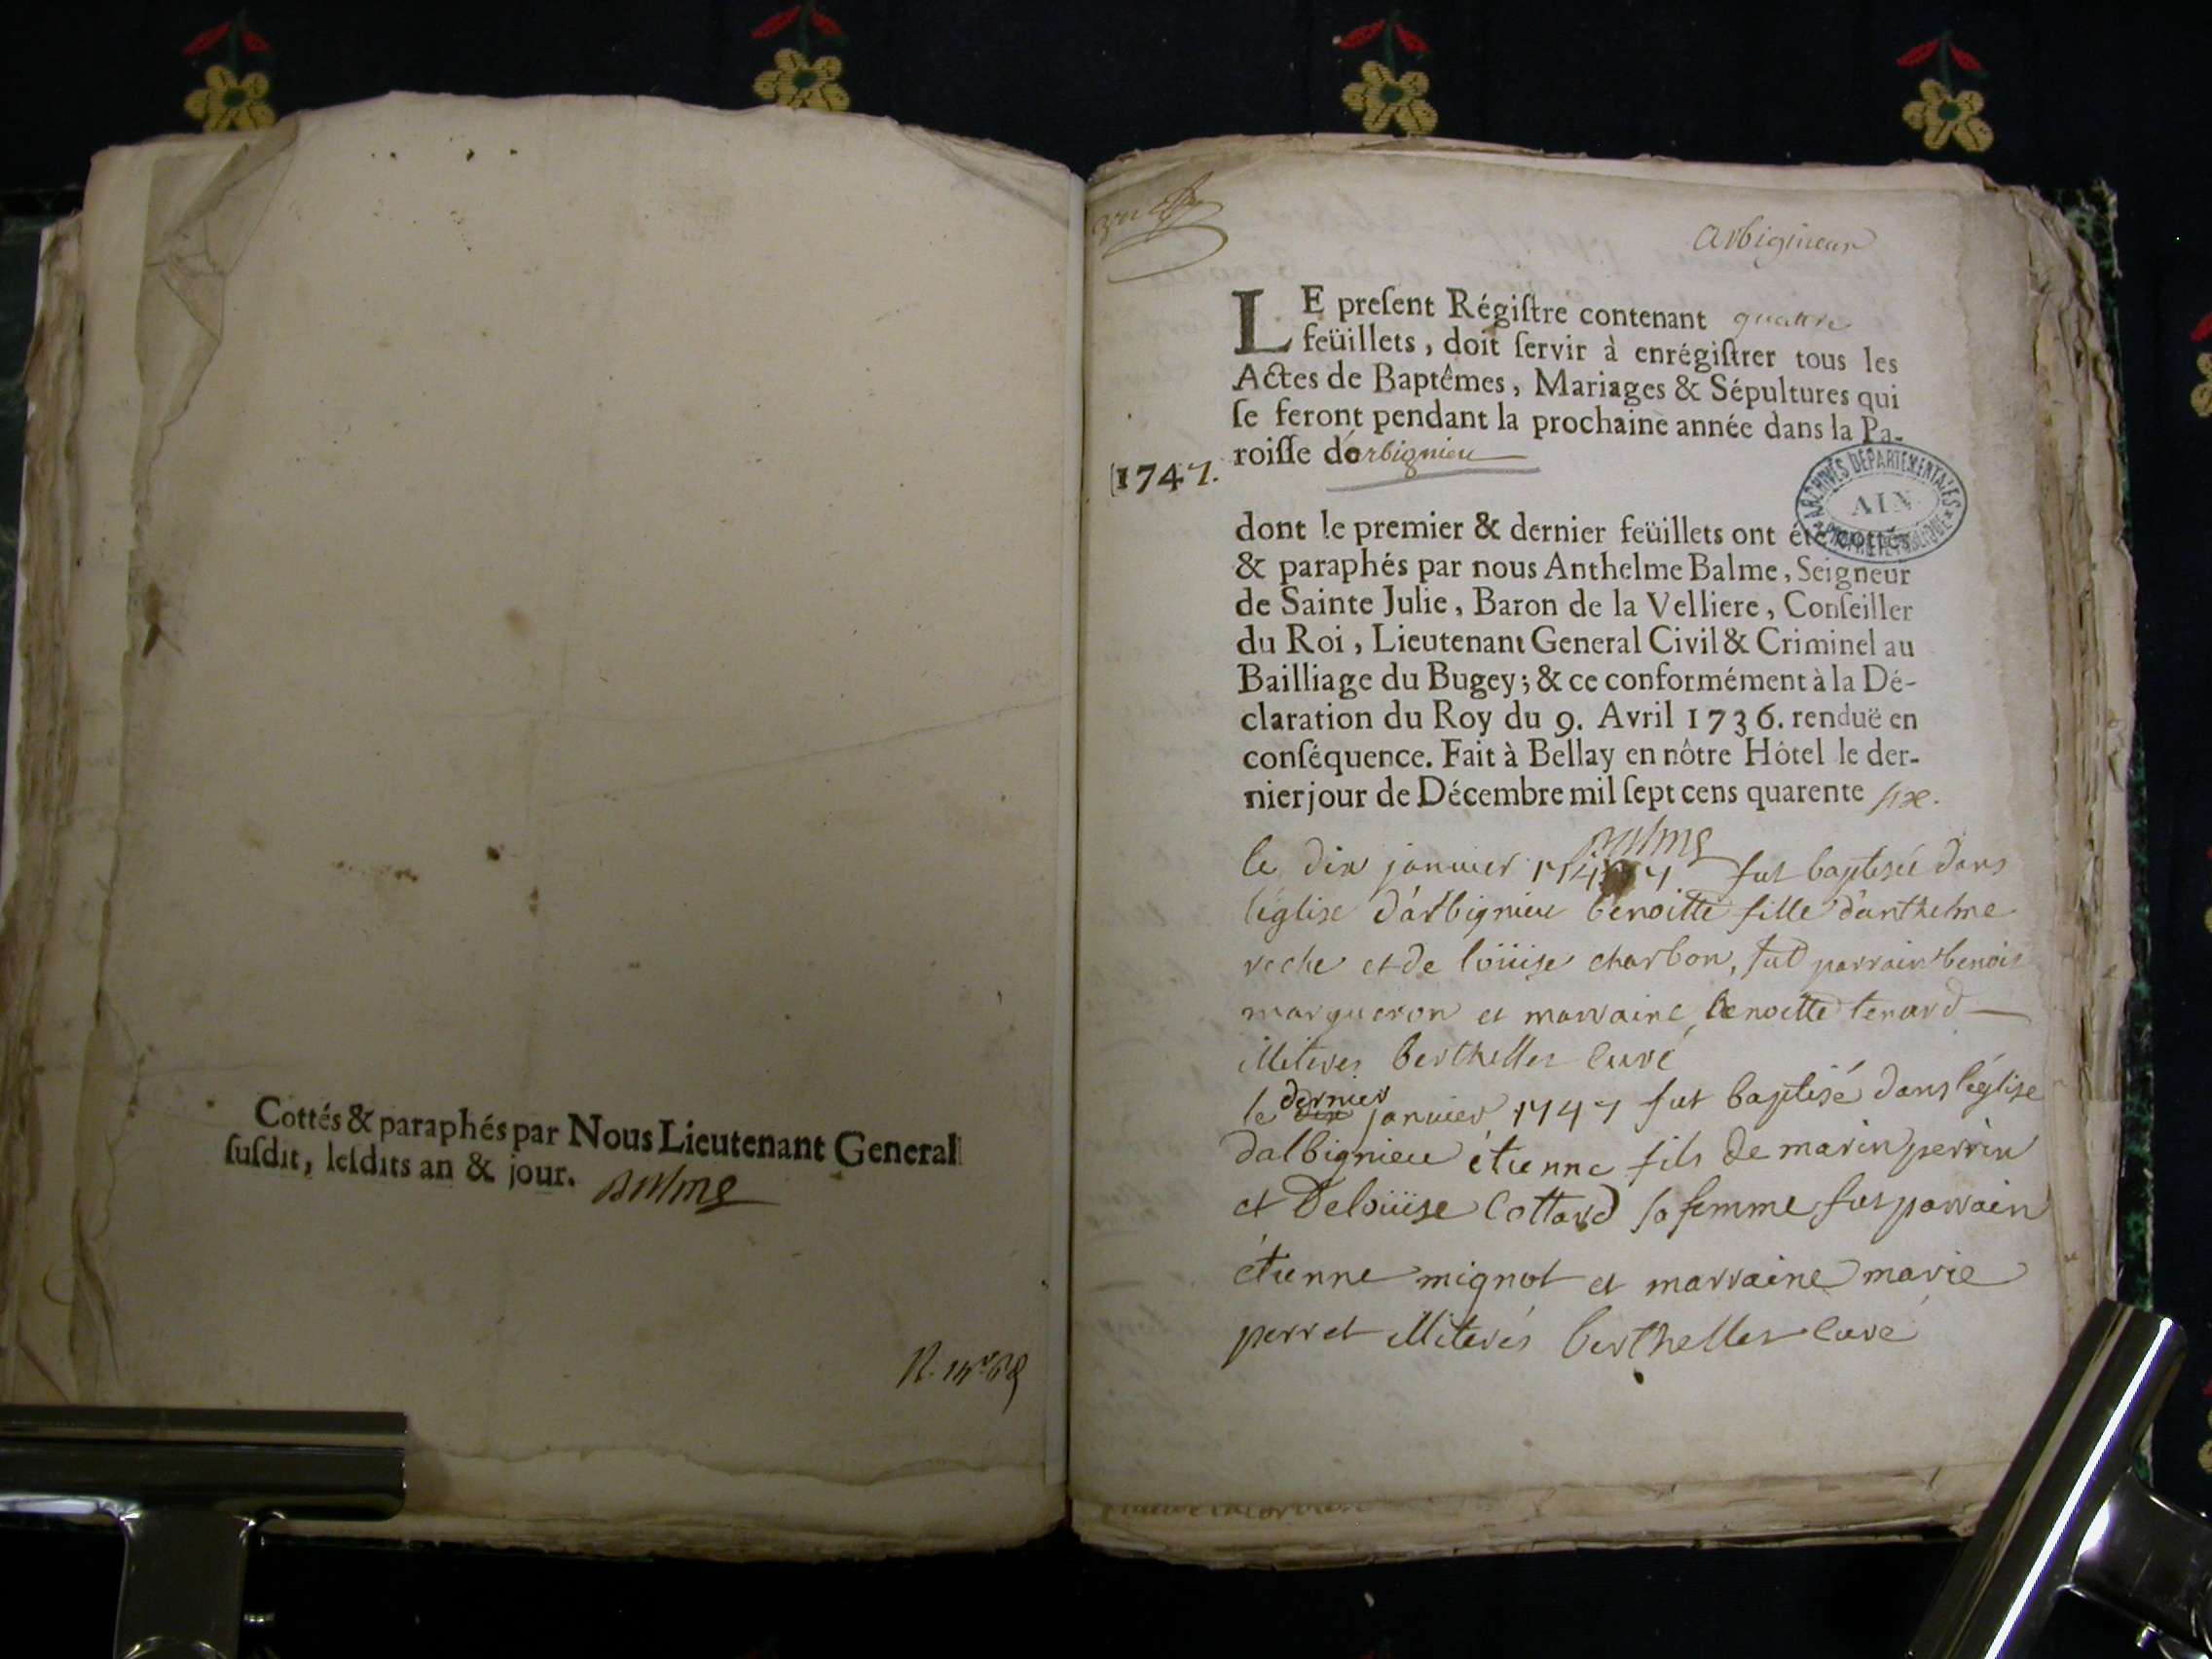 Cottés & paraphés par Nous Lieutenant General
ſuſdit, leſdits an & jour. Balme
Arbignieux
LE preſent Régiſtre contenant quattre
feüillets, doit ſervir à enrégiſtrer tous les
Actes de Baptêmes, Mariages & Sépultures qui
ſe feront pendant la prochaine année dans la Pa-
roiſſe d'orbignieu
1747.
ARCHIVES DEPARTEMENTALES
AIN
PROPRIETE PUBLIQUE
dont le premier & dernier feüillets ont été cottés
& paraphés par nous Anthelme Balme, Seigneur
de Sainte Julie, Baron de la Velliere, Conſeiller
du Roi, Lieutenant General Civil & Criminel au
Bailliage du Bugey; & ce conformément à la Dé-
claration du Roy du 9. Avril 1736. renduë en
conſéquence. Fait à Bellay en nôtre Hôtel le der-
nier jour de Décembre mil ſept cens quarente six.
Balme
le dix janvier 1747 fut baptisée dans
l'église d'arbignieu benoitte fille d'anthelme
roche et de loüise charbon, fut parrain benoit
margueron et marraine benoitte tenard
illiterés berthellet curé
le dernier janvier 1747 fut baptisé dans l'église
dalbignieu étienne fils de marin perrin
et De loüise Cottard sa femme fut parrain
étienne mignot et marraine marie
perret illiterés berthellet curé